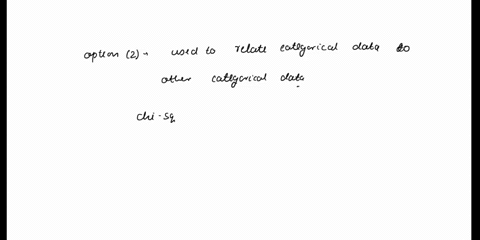 option (2) → used to relate categorical data to
other categorical data
chi-sq